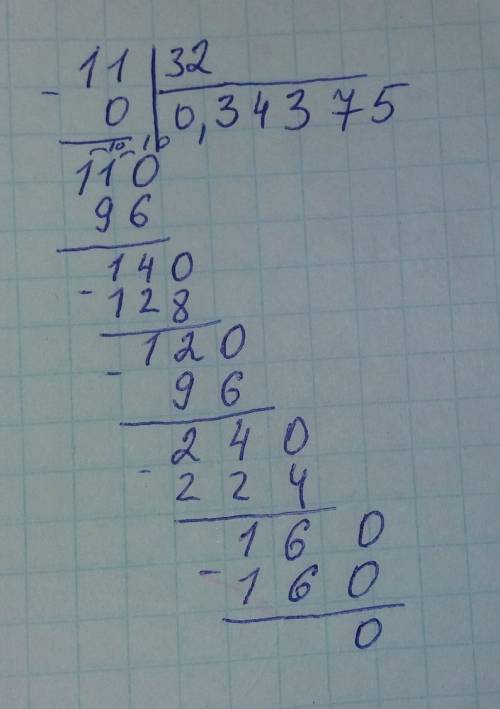 - 11 | 32
0 | 0,34375
10 10
110
96
140
- 128
120
- 96
240
- 224
160
- 160
0